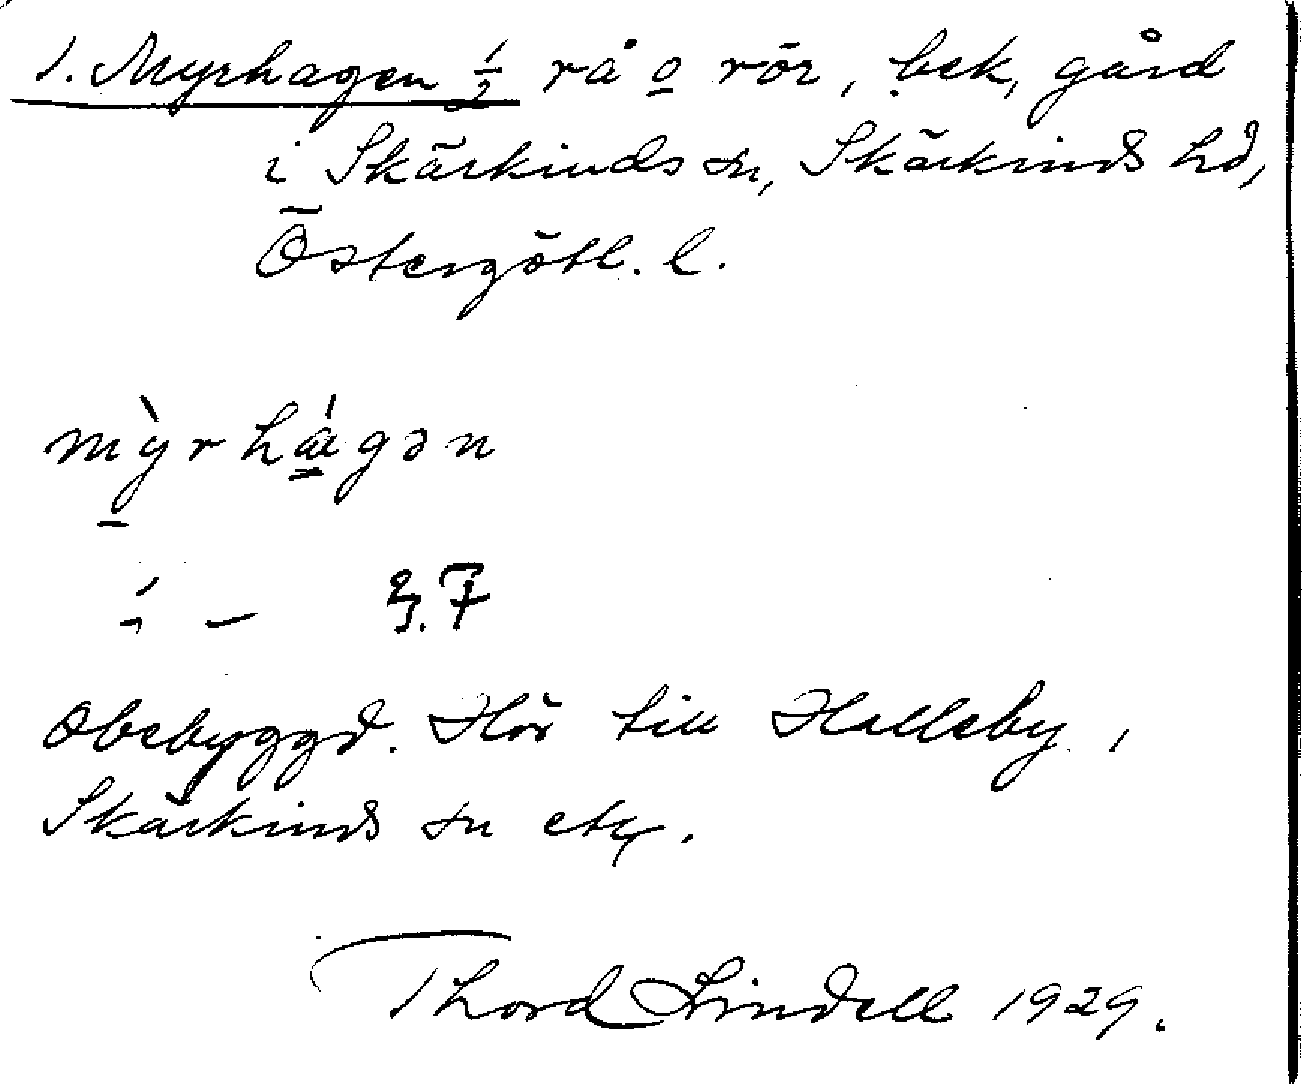 1. Myrhagen 1/2 rå o rör, bek, gård
i Skärkinds sn, Skärkinds hd,
Östergötl. l.
mỳrhágən
Obebyggd. Hör till Halleby,
Skärkinds sn etc.
Thord Lindell 1929.